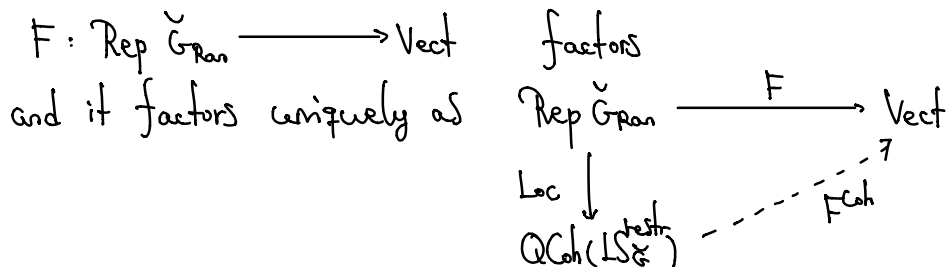 F : Rep Ǧ_Ran ⟶ Vect factors
and it factors uniquely as Rep Ǧ_Ran ⟶ Vect
F
Loc
F^Coh
QCoh(LS_Ǧ^restr)